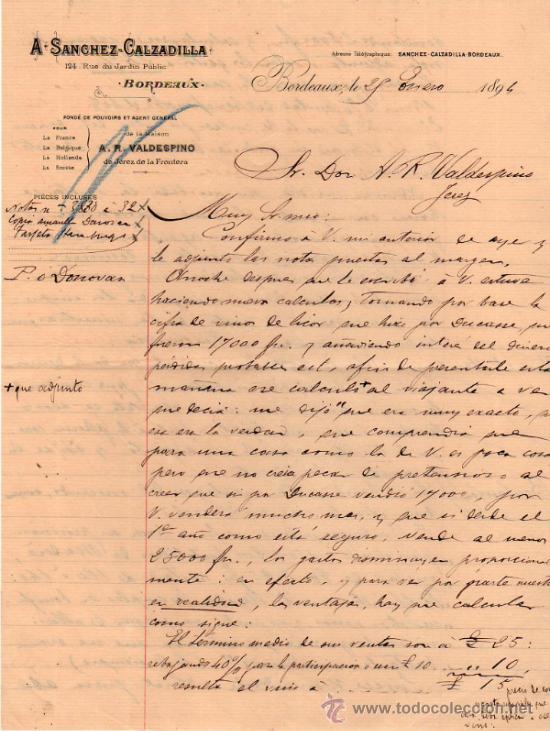 A. SANCHEZ-CALZADILLA
124, Rue du Jardin Public
BORDEAUX
Adresse Télégraphique: SANCHEZ-CALZADILLA-BORDEAUX.
Bordeaux, le 25 Enero 1896
FONDÉ DE POUVOIRS ET AGENT GÉNÉRAL
POUR
La France
La Belgique
La Hollande
La Suisse
de la Maison
A. R. VALDESPINO
de Jérez de la Frontera
Sr. Don A. R. Valdespino
Jerez
PIÈCES INCLUSES
Notas n
Copia
Tarjeta
P. O Donovan
+ que adjunto
Muy Sr mio:
Confirmo à V. mi anterior de ayer y
le adjunto las notas puestas al margen.
Anoche despues que le escribí à V. estuve
haciendo nuevos calculos, tomando por base la
cifra de vinos de licor que hizo por Ducasse, que
fueron 17000 fr. y añadiendo interés del dinero
perdidas probables ect, afin de presentarle esta
mañana ese calculo + al viajante a ver
que decia: me dijo que era muy exacto,
esa era la verdad, que comprendia que
para una casa como la de V. es poca cosa
pero que no creia pecar de pretensioso al
creer que si por Ducasse vendió 17000, por
V. venderá mucho mas, y que si desde el
1er año como está seguro, vende al menos
25000 fr., los gastos disminuyen proporcional
mente: en efecto, y para ver por parte nuestra
en realidad, las ventajas, hay que calcular
como sigue:
El termino medio de sus ventas son a £ 25:
rebajando 40% para la participacion £ 10 " " 10
resulta el vino à £ 15
www.todocoleccion.net